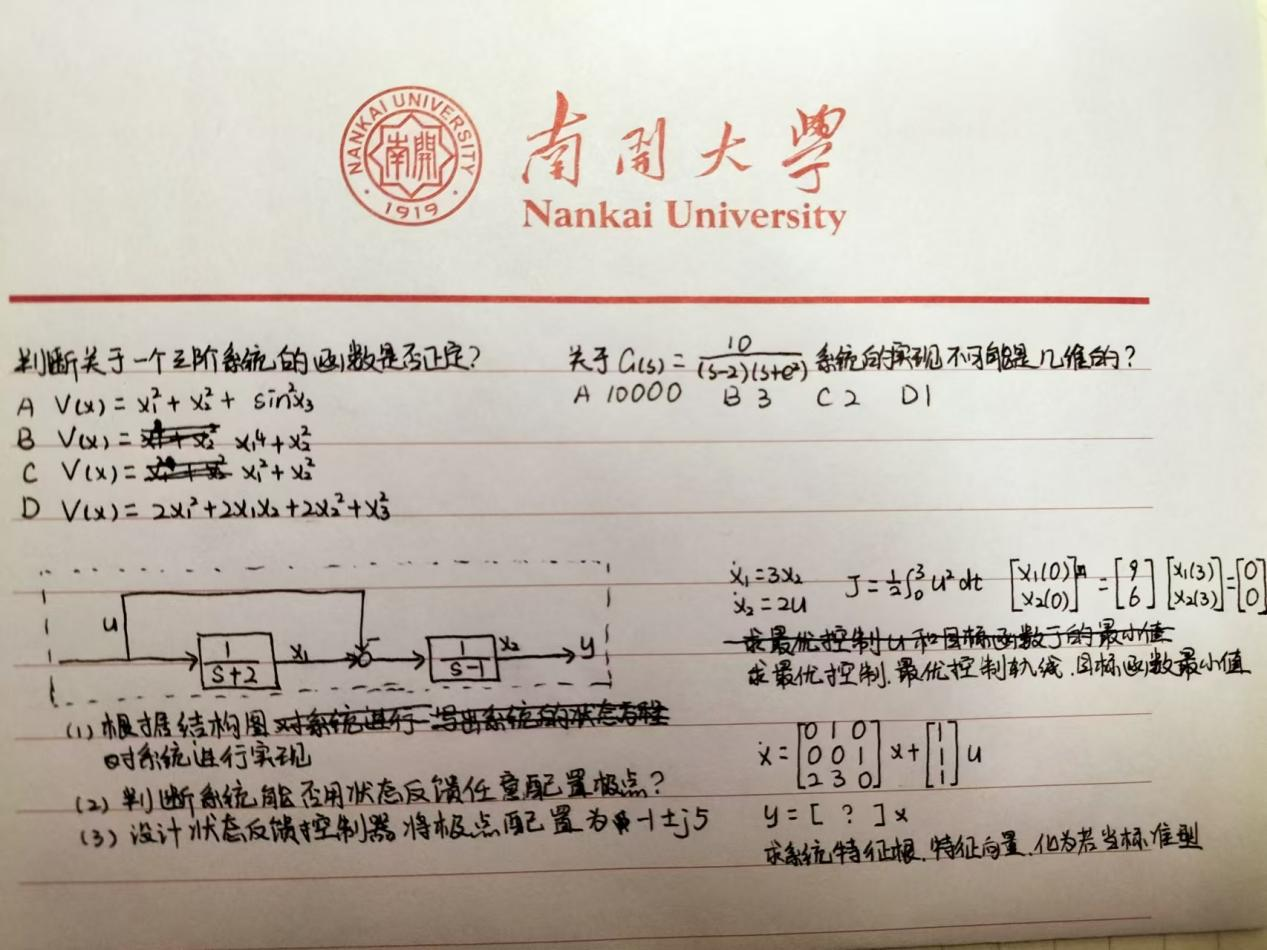 NANKAI UNIVERSITY
南開
1919
南開大學
Nankai University
判断关于一个三阶系统的函数是否正定?
A V(x) = x₁² + x₂² + sin²x₃
B V(x) = x₁⁴ + x₂²
C V(x) = x₁² + x₂²
D V(x) = 2x₁² + 2x₁x₂ + 2x₂² + x₃²
关于 G(s) = 10/((s-2)(s+e²)) 系统的实现不可能是几维的?
A 10000 B 3 C 2 D 1
u 1/(s+2) x₁ - 1/(s-1) x₂ y
(1) 根据结构图 对系统进行 写出系统的状态方程
对系统进行实现
(2) 判断系统能否用状态反馈任意配置极点?
(3) 设计状态反馈控制器将极点配置为 -1±j5
ẋ₁ = 3x₂
ẋ₂ = 2u
J = ½∫₀³ u² dt [x₁(0) x₂(0)] = [9 6] [x₁(3) x₂(3)] = [0 0]
求最优控制 u 和目标函数 J 的最小值
求最优控制、最优控制轨线、目标函数最小值
ẋ = [0 1 0
0 0 1
2 3 0] x + [1 1 1] u
y = [ ? ] x
求系统特征根、特征向量、化为若当标准型